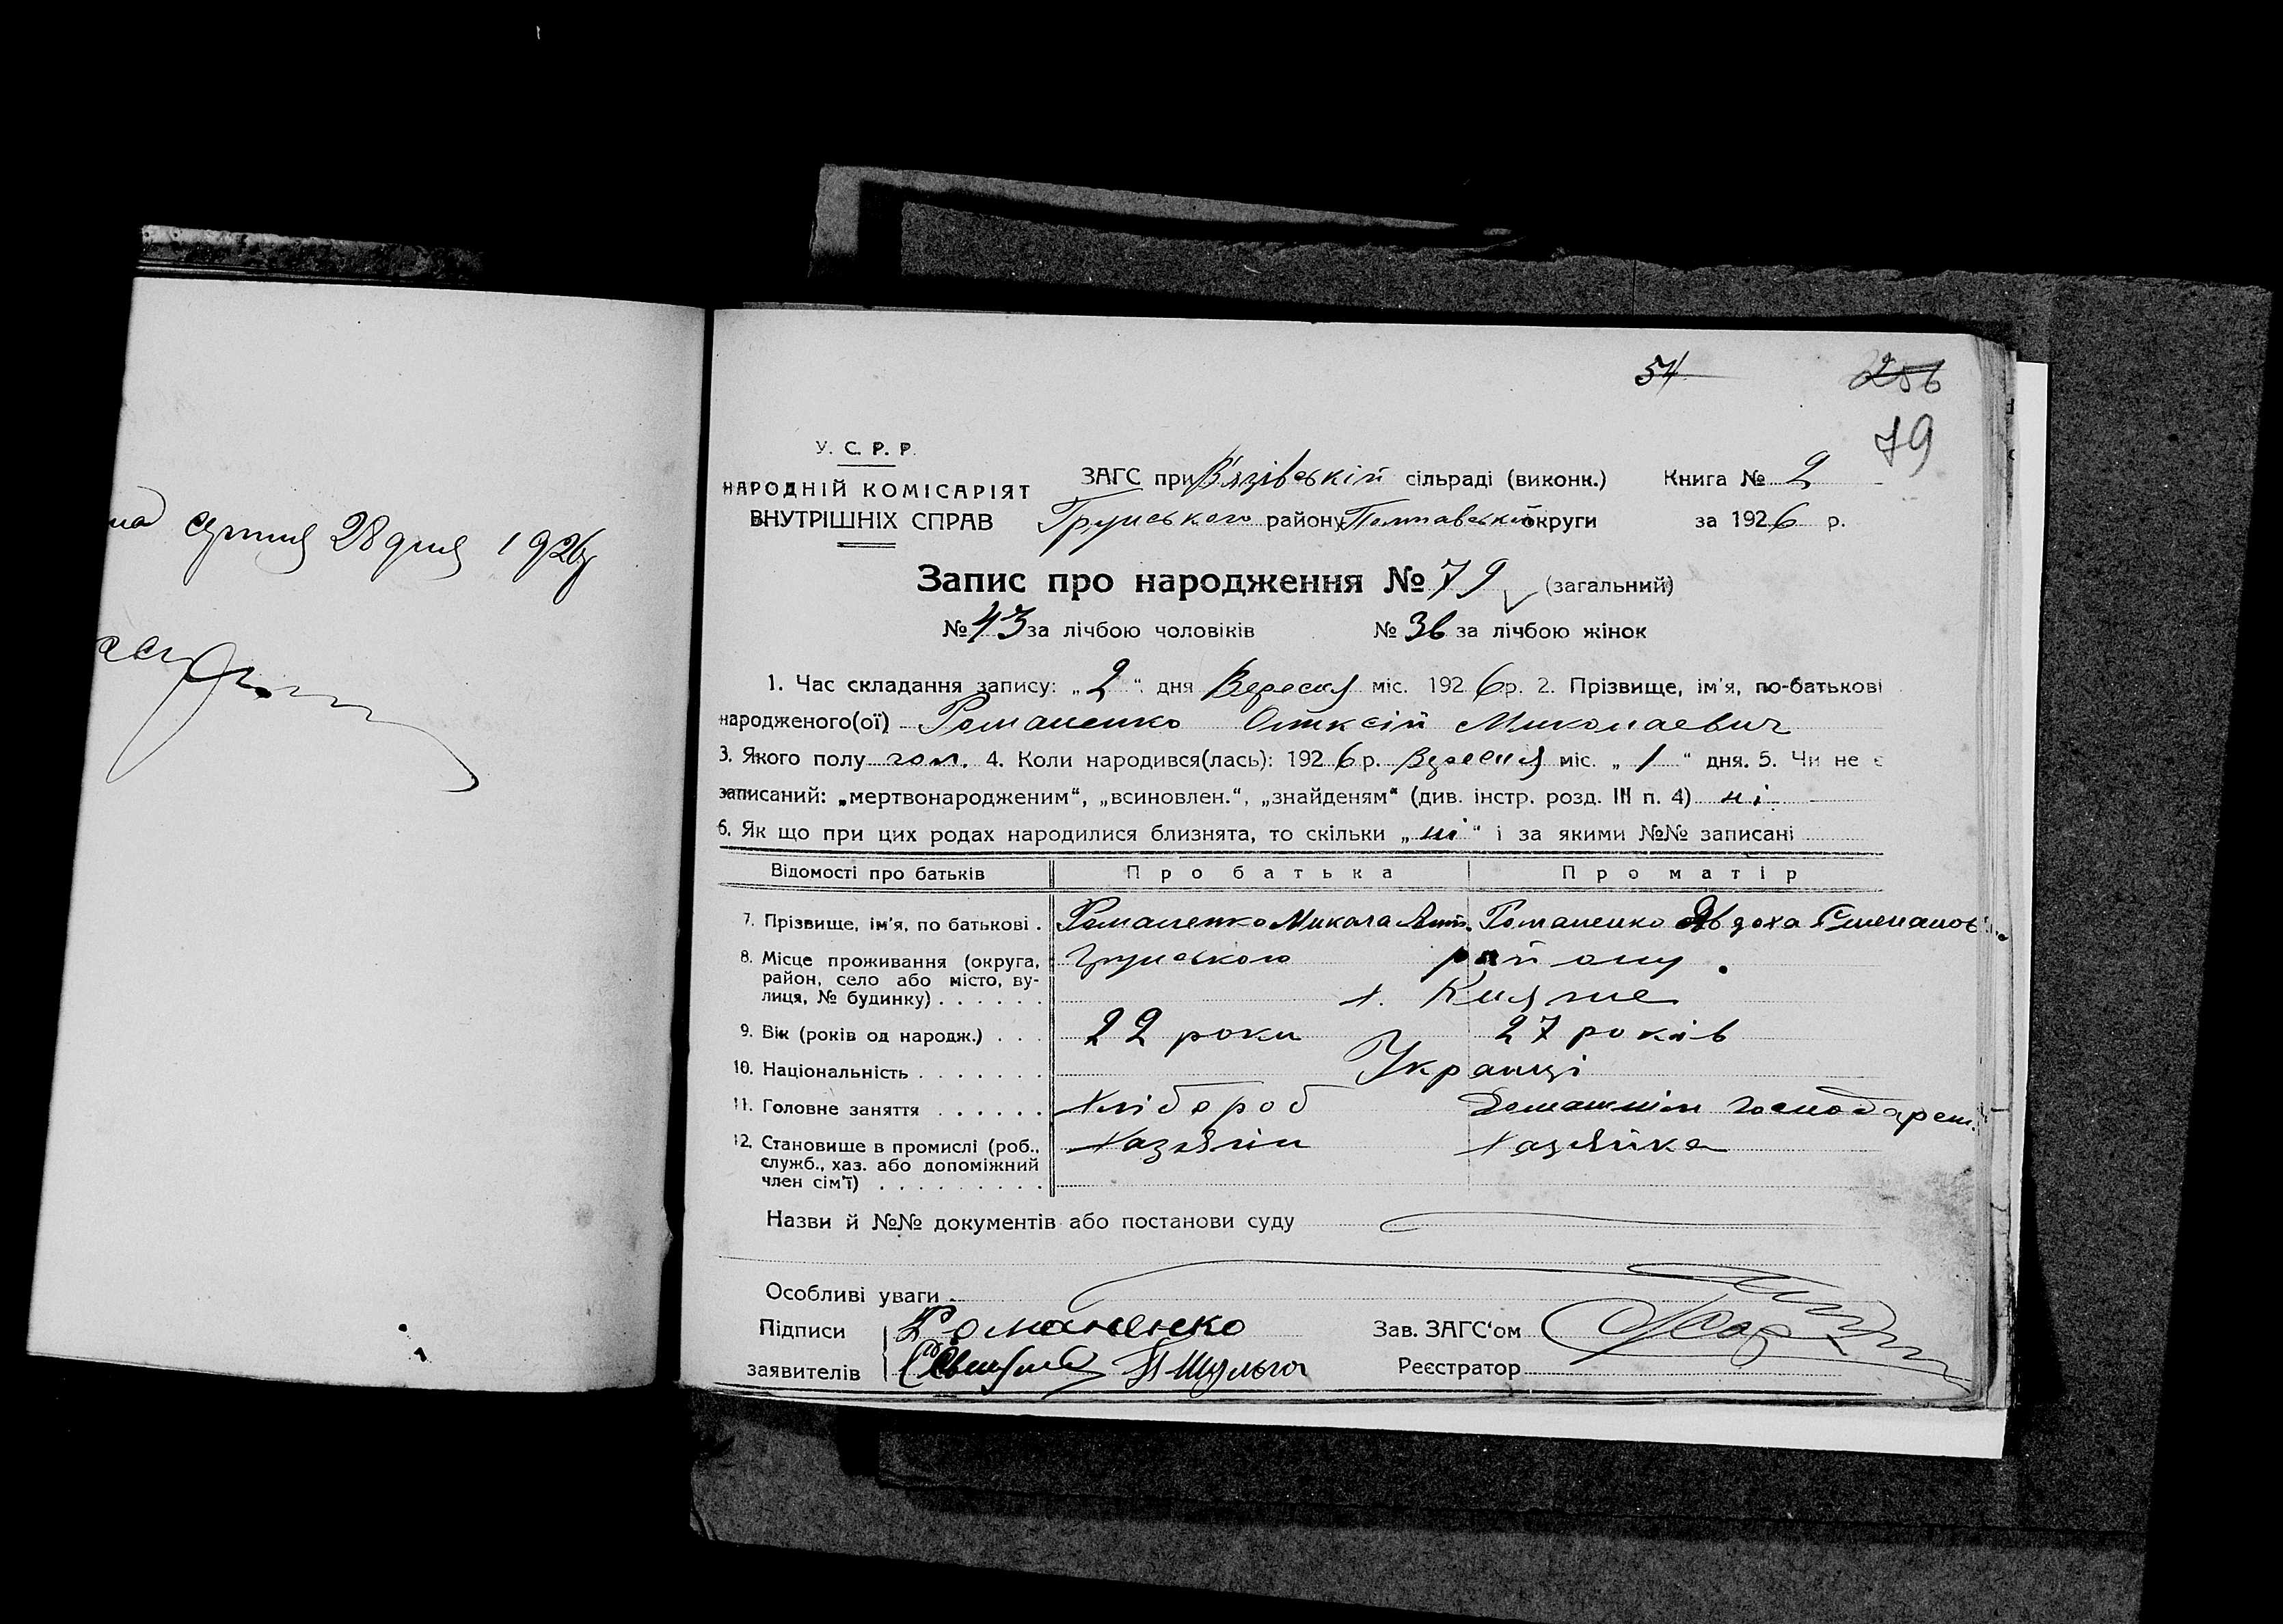 серпня 28 дня 1926 р
54
256
79
У. С. Р. Р.
НАРОДНІЙ КОМІСАРІЯТ
ВНУТРІШНІХ СПРАВ
ЗАГС при В'язівській сільраді (виконк.) Книга № 2
Грунського району Полтавської округи за 1926 р.
Запис про народження № 79 (загальний)
№ 43 за лічбою чоловіків № 36 за лічбою жінок
1. Час складання запису: „2“ дня Вересня міс. 1926 р. 2. Прізвище, ім'я, по-батькові
народженого(ої) Романенко Олексій Миколаевич
3. Якого полу чол. 4. Коли народився(лась): 1926 р. Вересня міс. „1“ дня. 5. Чи не є
записаний: „мертвонародженим“, „всиновлен.“, „знайденям“ (див. інстр. розд. III п. 4) ні.
6. Як що при цих родах народилися близнята, то скільки „ні“ і за якими №№ записані
Відомості про батьків Про батька Про матір
7. Прізвище, ім'я, по батькові . Романенко Микола Ант. Романенко Явдоха Степанов
8. Місце проживання (округа, Грунського району.
район, село або місто, ву-
лиця, № будинку) . . . . . . х. Княже
9. Вік (років од народж.) . . . 22 роки 27 років
10. Національність . . . . . . . Українці
11. Головне заняття . . . . . . Хлібороб Домашнім господарст.
12. Становише в промислі (роб., Хазяїн Хазяйка
служб., хаз. або допоміжний
член сім'ї) . . . . . . . . .
Назви й №№ документів або постанови суду
Особливі уваги
Підписи Романенко Зав. ЗАГС'ом
заявителів П Шульга Реєстратор